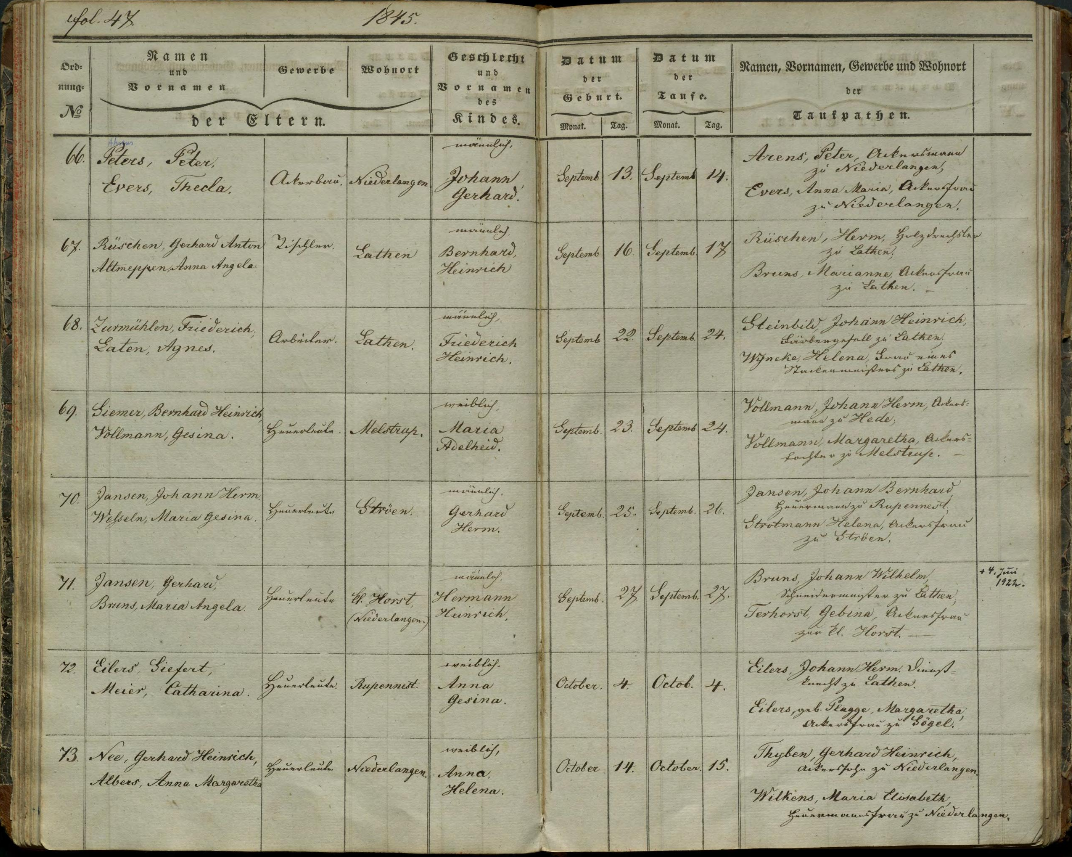 fol. 47 1845.
Ord-
nung:
No
Namen
und
Vornamen
Gewerbe
Wohnort
der Eltern.
Geschlecht
und
Vornamen
des
Kindes.
Datum
der
Geburt.
Monat. Tag.
Datum
der
Taufe.
Monat. Tag.
Namen, Vornamen, Gewerbe und Wohnort
der
Taufpathen.
66.
Peters, Peter.
Evers, Thecla.
Ackerbau.
Niederlangen
männlich.
Johann
Gerhard.
Septemb 13. Septemb 14.
Arens, Peter, Ackersmann
zu Niederlangen,
Evers, Anna Maria, Ackersfrau
zu Niederlangen.
67.
Rüschen, Gerhard Anton
Altmeppen, Anna Angela
Tischler.
Lathen
männlich
Bernhard,
Heinrich
Septemb 16. Septemb. 17
Rüschen, Herm, Holzdrechsler
zu Lathen,
Bruns, Marianne, Ackersfrau
zu Lathen. –
68.
Zurmühlen, Friederich,
Laten, Agnes.
Arbeiter.
Lathen.
männlich,
Friederich
Heinrich.
Septemb 22. Septemb. 24.
Steinbild, Johann Heinrich,
zu Lathen
Wyncke, Helena, Frau eines
zu Lathen.
69.
Siemer, Bernhard Heinrich
Vollmann, Gesina.
Heuerleute.
Melstrup.
weiblich,
Maria
Adelheid.
Septemb. 23. Septemb 24.
Vollmann, Johann Herm, Ackers-
mann zu Hede,
Vollmann, Margaretha, Ackers-
tochter zu Melstrup. –
70.
Jansen, Johann Herm
Wesseln, Maria Gesina.
Heuerleute
Ströen.
männlich.
Gerhard
Herm.
Septemb. 25. Septemb. 26.
Jansen, Johann Bernhard
Heuermann zu Rupennest,
Strotmann Helena, Ackersfrau
zu Ströen.
71.
Jansen, Gerhard,
Bruns, Maria Angela.
Heuerleute
Kl. Horst.
(Niederlangen.)
männlich
Hermann
Heinrich.
Septemb. 27 Septemb. 27.
Bruns, Johann Wilhelm,
Schneidermeister zu Lathen,
Terhorst, Gebina, Ackersfrau
zur Kl. Horst. —
+ 4. Juni
1922.
72.
Eilers Siefert,
Meier, Catharina.
Heuerleute.
Rupennest.
weiblich.
Anna
Gesina.
October. 4. Octob. 4.
Eilers, Johann Herm. Dienst-
knecht zu Lathen.
Eilers, geb. Plagge, Margaretha,
Ackersfrau zu Sögel.
73.
Nee, Gerhard Heinrich,
Albers, Anna Margaretha
Heuerleute
Niederlangen.
weiblich,
Anna
Helena.
October 14. October. 15.
Thyben, Gerhard Heinrich,
Ackerssohn zu Niederlangen
Wilkens, Maria Elisabeth,
Heuermannsfrau zu Niederlangen.